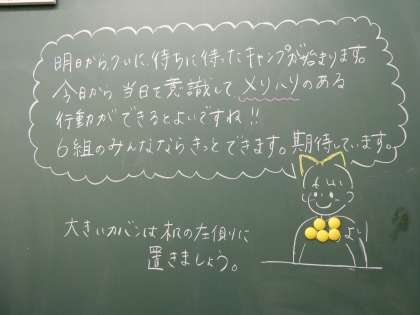 明日から、ついに、待ちに待ったキャンプが始まります。
今日から当日を意識してメリハリのある
行動ができるとよいですね!!
6組のみんなならきっとできます。期待しています。
大きいカバンは机の左側に
置きましょう。
より